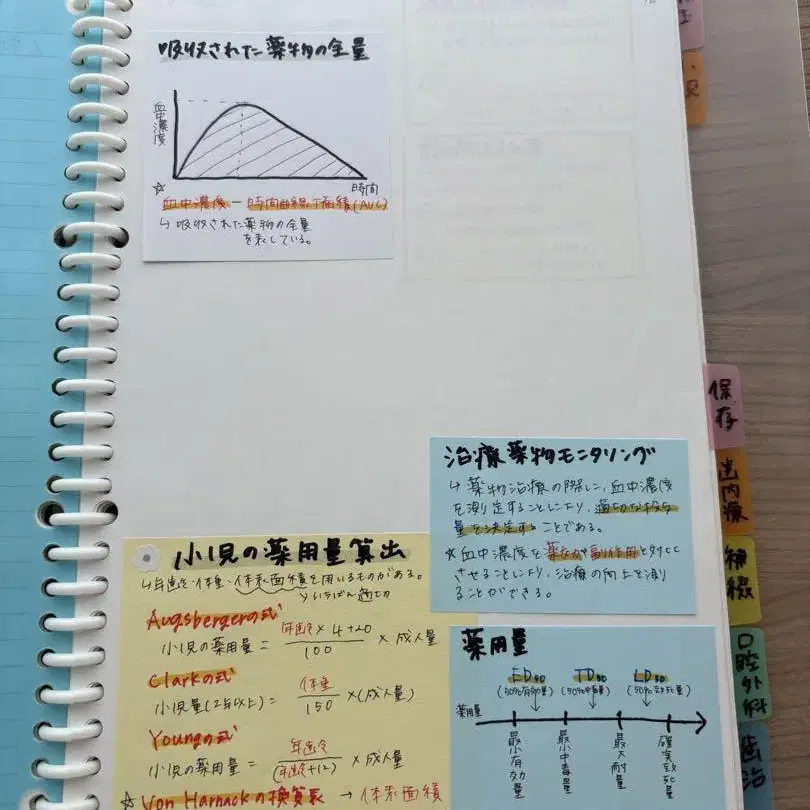 吸収された薬物の全量
血中濃度
時間
☆血中濃度−時間曲線下面積(AUC)
↳吸収された薬物の全量
を表している。
治療薬物モニタリング
↳薬物治療の際に、血中濃度
を測定することにより、適切な投与
量を決定することである。
★血中濃度を薬効や副作用と対比
させることにより、治療の向上を測
ることができる。
小児の薬用量算出
↳年齢・体重・体表面積を用いるものがある。
→いちばん適切
Augsbergerの式
小児の薬用量 = 年齢×4+20 / 100 × 成人量
Clarkの式
小児量(2年以上) = 体重 / 150 ×(成人量)
Youngの式
小児の薬用量 = 年齢 / (年齢+12) × 成人量
☆Von Harnackの換算表 → 体表面積
薬用量
ED50 TD50 LD50
(50%有効量) (50%中毒量) (50%致死量)
薬用量
最小有効量
最小中毒量
最大耐量
確実致死量
保存
歯内療
補綴
口腔外科
歯治